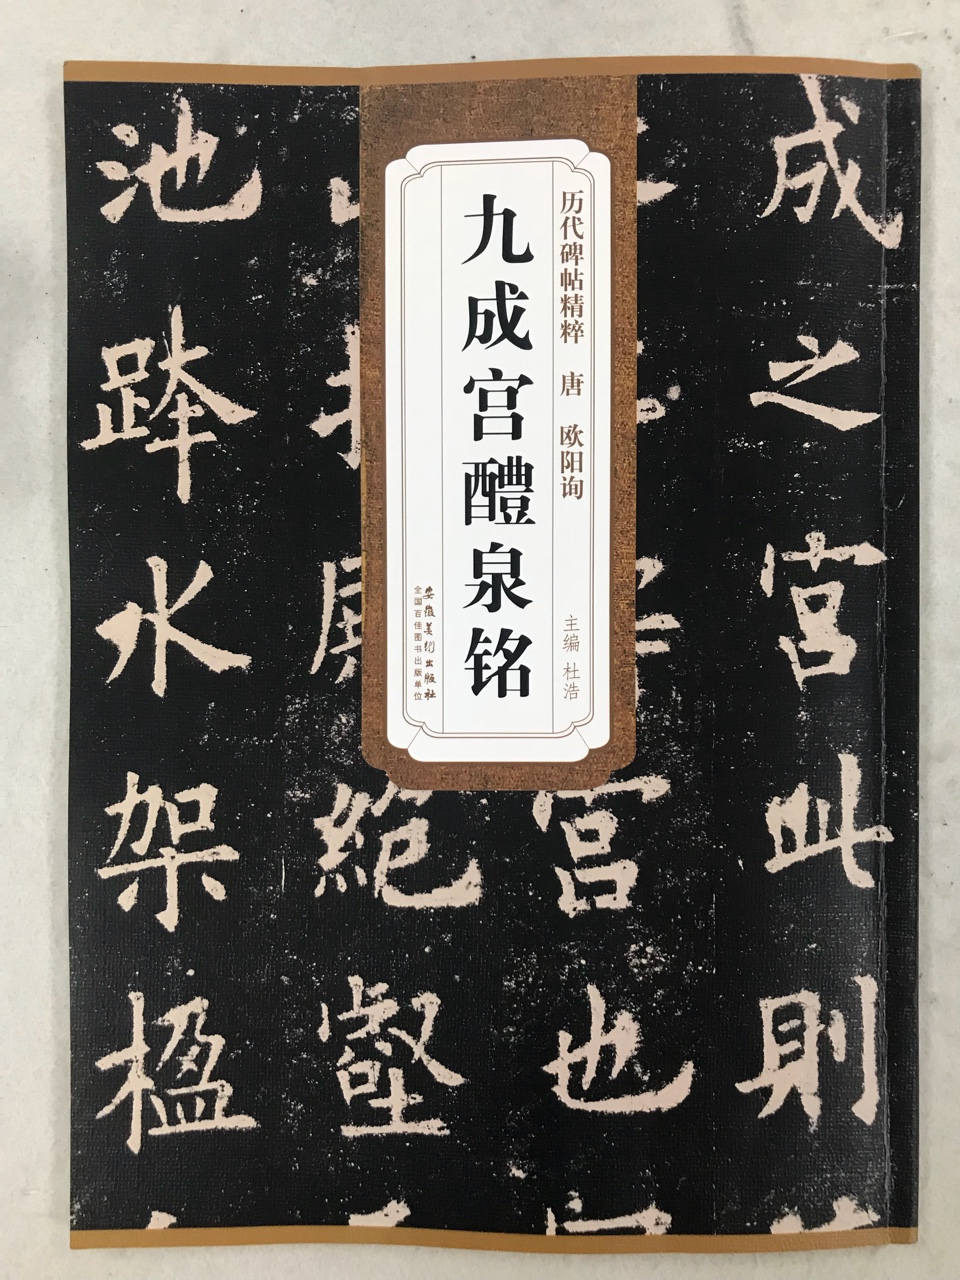 成之宫此則
宫也
絶壑
池跸水架楹
历代碑帖精粹 唐 欧阳询
主编 杜浩
九成宫醴泉铭
安徽美术出版社
全国百佳图书出版单位